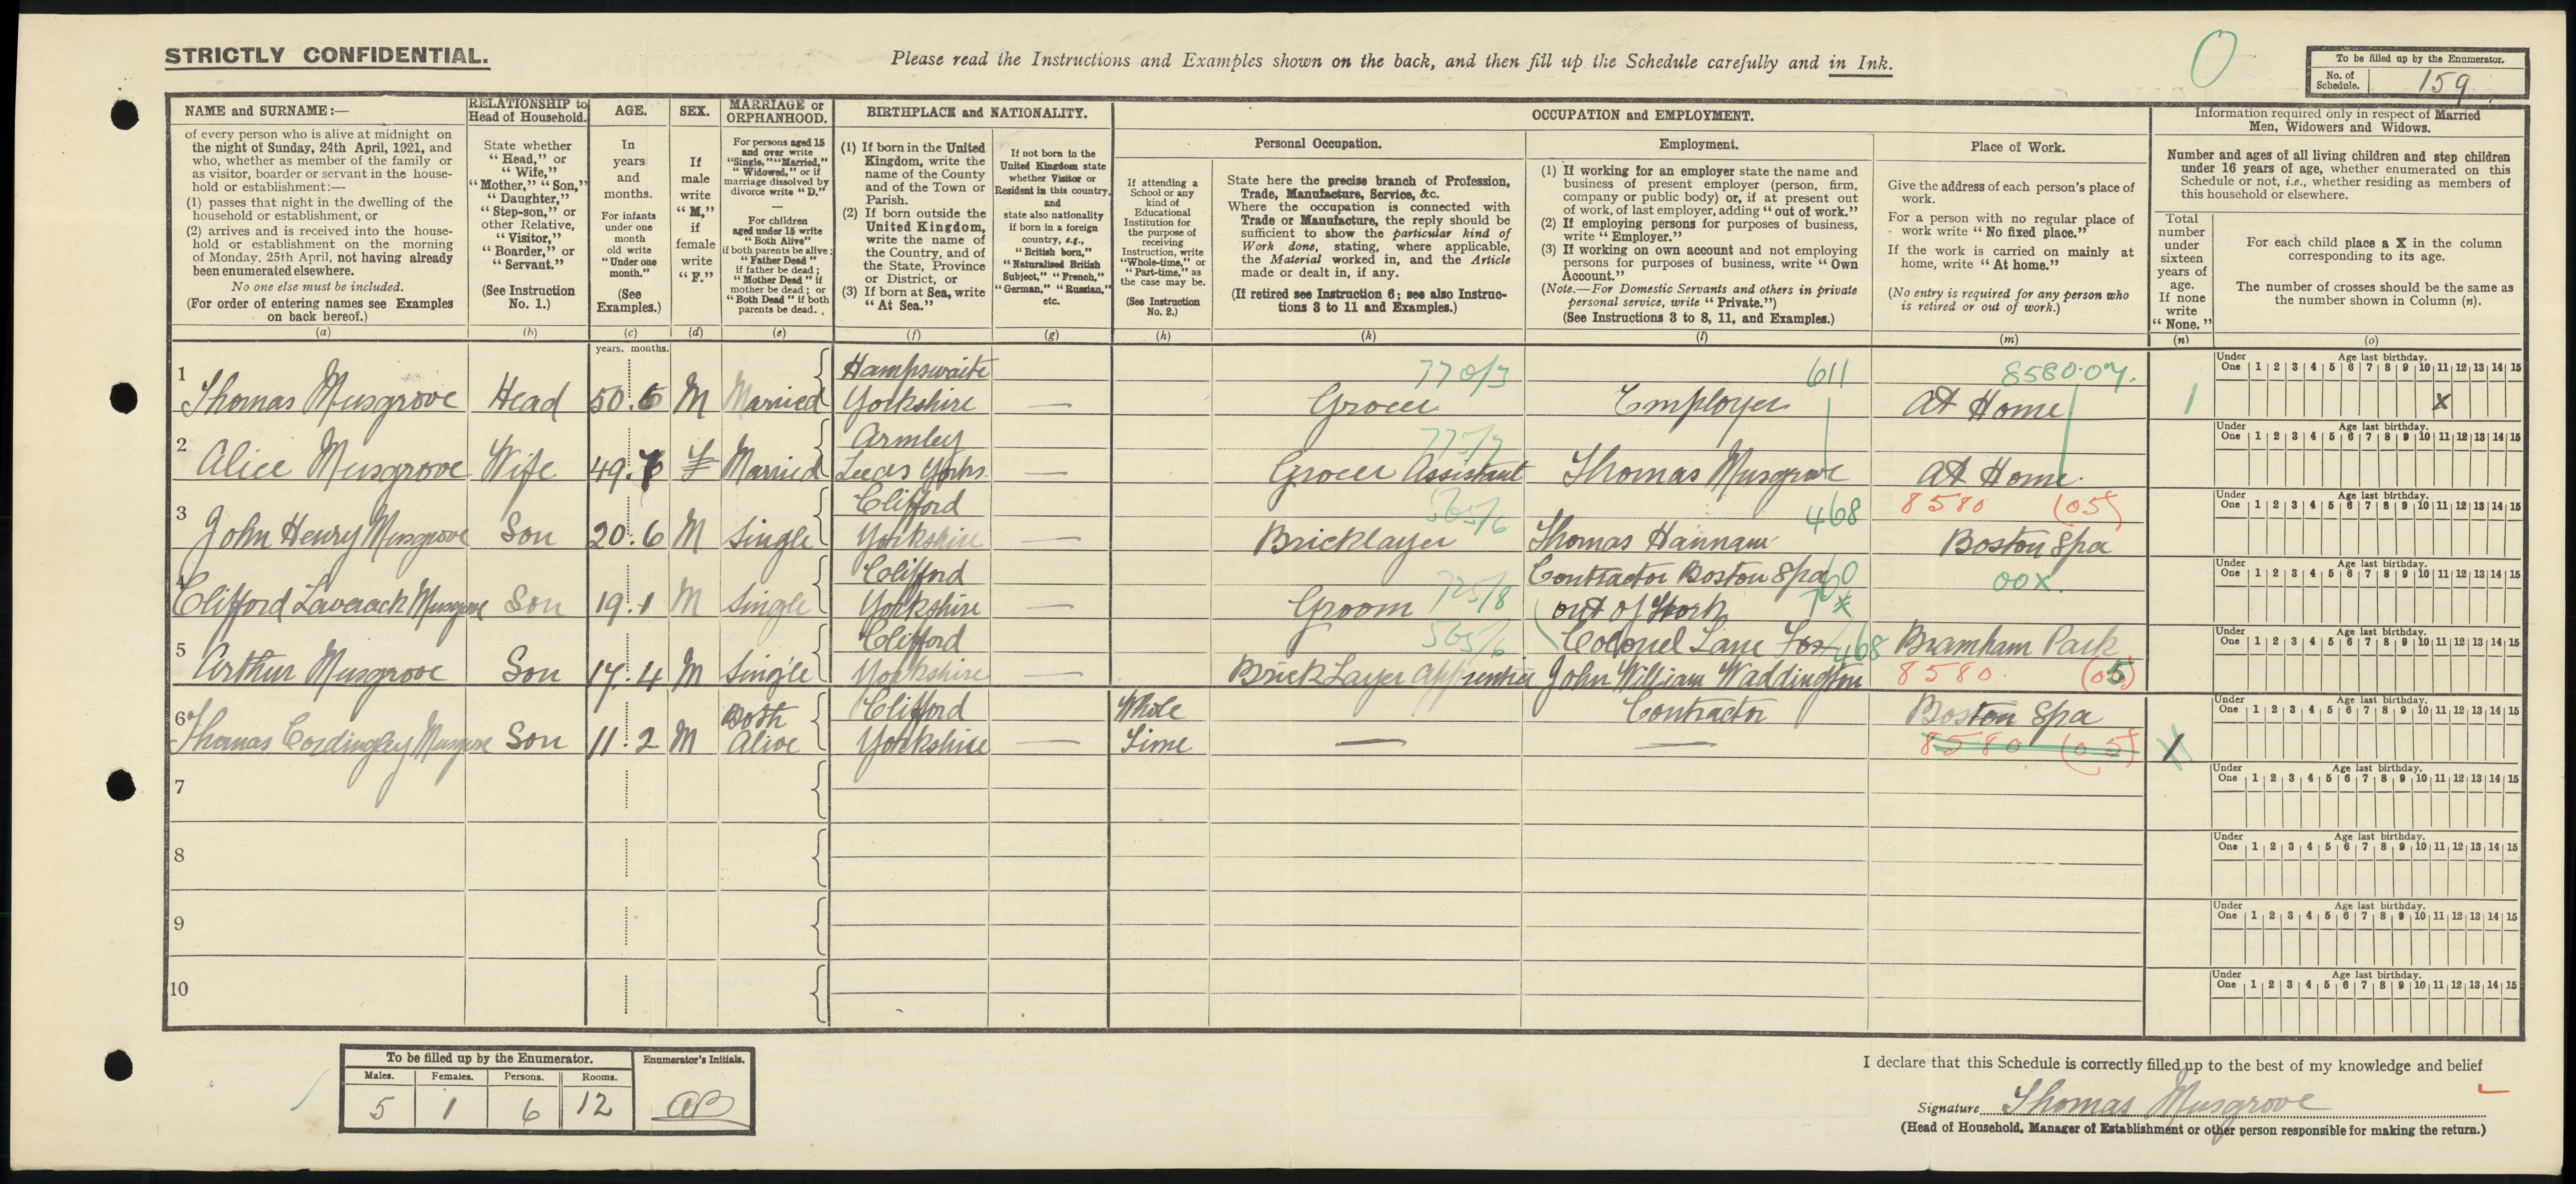 STRICTLY CONFIDENTIAL.
Please read the Instructions and Examples shown on the back, and then fill up the Schedule carefully and in Ink.
0
To be filled up by the Enumerator.
No. of Schedule. 159
NAME and SURNAME:—
of every person who is alive at midnight on
the night of Sunday, 24th April, 1921, and
who, whether as member of the family or
as visitor, boarder or servant in the house-
hold or establishment:—
(1) passes that night in the dwelling of the
household or establishment, or
(2) arrives and is received into the house-
hold or establishment on the morning
of Monday, 25th April, not having already
been enumerated elsewhere.
No one else must be included.
(For order of entering names see Examples
on back hereof.)
(a)
RELATIONSHIP to
Head of Household.
State whether
"Head," or
"Wife,"
"Mother," "Son,"
"Daughter,"
"Step-son," or
other Relative,
"Visitor,"
"Boarder," or
"Servant."
(See Instruction
No. 1.)
(b)
AGE.
In
years
and
months.
For infants
under one
month
old write
"Under one
month."
(See
Examples.)
(c)
SEX.
If
male
write
"M,"
if
female
write
"F."
(d)
MARRIAGE or
ORPHANHOOD.
For persons aged 15
and over write
"Single," "Married,"
"Widowed," or if
marriage dissolved by
divorce write "D."
—
For children
aged under 15 write
"Both Alive"
if both parents be alive;
"Father Dead"
if father be dead;
"Mother Dead" if
mother be dead; or
"Both Dead" if both
parents be dead.
(e)
BIRTHPLACE and NATIONALITY.
(1) If born in the United
Kingdom, write the
name of the County
and of the Town or
Parish.
(2) If born outside the
United Kingdom,
write the name of
the Country, and of
the State, Province
or District, or
(3) If born at Sea, write
"At Sea."
(f)
If not born in the
United Kingdom state
whether Visitor or
Resident in this country,
and
state also nationality
if born in a foreign
country, e.g.,
"British born,"
"Naturalised British
Subject," "French,"
"German," "Russian,"
etc.
(g)
OCCUPATION and EMPLOYMENT.
Personal Occupation.
If attending a
School or any
kind of
Educational
Institution for
the purpose of
receiving
Instruction, write
"Whole-time," or
"Part-time," as
the case may be.
(See Instruction
No. 2.)
(h)
State here the precise branch of Profession,
Trade, Manufacture, Service, &c.
Where the occupation is connected with
Trade or Manufacture, the reply should be
sufficient to show the particular kind of
Work done, stating, where applicable,
the Material worked in, and the Article
made or dealt in, if any.
(If retired see Instruction 6; see also Instruc-
tions 3 to 11 and Examples.)
(k)
Employment.
(1) If working for an employer state the name and
business of present employer (person, firm,
company or public body) or, if at present out
of work, of last employer, adding "out of work."
(2) If employing persons for purposes of business,
write "Employer."
(3) If working on own account and not employing
persons for purposes of business, write "Own
Account."
(Note.—For Domestic Servants and others in private
personal service, write "Private.")
(See Instructions 3 to 8, 11, and Examples.)
(l)
Place of Work.
Give the address of each person's place of
work.
For a person with no regular place of
work write "No fixed place."
If the work is carried on mainly at
home, write "At home."
(No entry is required for any person who
is retired or out of work.)
(m)
Information required only in respect of Married
Men, Widowers and Widows.
Number and ages of all living children and step children
under 16 years of age, whether enumerated on this
Schedule or not, i.e., whether residing as members of
this household or elsewhere.
Total
number
under
sixteen
years of
age.
If none
write
"None."
(n)
For each child place a X in the column
corresponding to its age.
The number of crosses should be the same as
the number shown in Column (n).
(o)
years. months.
Under One Age last birthday. 1 2 3 4 5 6 7 8 9 10 11 12 13 14 15
Hampswaite 770/3 611 8580.07.
1 Thomas Musgrove Head 50.6 M Married Yorkshire — Grocer Employer At Home 1 X
Under One Age last birthday. 1 2 3 4 5 6 7 8 9 10 11 12 13 14 15
Armley 775/7
2 Alice Musgrove Wife 49.7 F Married Leeds Yorks. — Grocer Assistant Thomas Musgrove At Home.
Under One Age last birthday. 1 2 3 4 5 6 7 8 9 10 11 12 13 14 15
Clifford 565/6 468 8580 (05)
3 John Henry Musgrove Son 20.6 M Single Yorkshire — Bricklayer Thomas Hannam Boston Spa
Under One Age last birthday. 1 2 3 4 5 6 7 8 9 10 11 12 13 14 15
Clifford Contractor Boston Spa 00X
4 Clifford Laverack Musgrove Son 19.1 M Single Yorkshire — Groom 725/8 out of Work
Under One Age last birthday. 1 2 3 4 5 6 7 8 9 10 11 12 13 14 15
Clifford 565/6 Colonel Lane Fox 468 Bramham Park
5 Arthur Musgrove Son 17.4 M Single Yorkshire — Brick Layer Apprentice John William Waddington 8580. (05)
Under One Age last birthday. 1 2 3 4 5 6 7 8 9 10 11 12 13 14 15
Both Clifford Whole Contractor Boston Spa
6 Thomas Cordingley Musgrove Son 11.2 M Alive Yorkshire — Time — — 8580 (05) 1
Under One Age last birthday. 1 2 3 4 5 6 7 8 9 10 11 12 13 14 15
7
Under One Age last birthday. 1 2 3 4 5 6 7 8 9 10 11 12 13 14 15
8
Under One Age last birthday. 1 2 3 4 5 6 7 8 9 10 11 12 13 14 15
9
Under One Age last birthday. 1 2 3 4 5 6 7 8 9 10 11 12 13 14 15
10
To be filled up by the Enumerator.
Males. Females. Persons. Rooms.
5 1 6 12
Enumerator's Initials.
AB
I declare that this Schedule is correctly filled up to the best of my knowledge and belief
Signature Thomas Musgrove
(Head of Household, Manager of Establishment or other person responsible for making the return.)